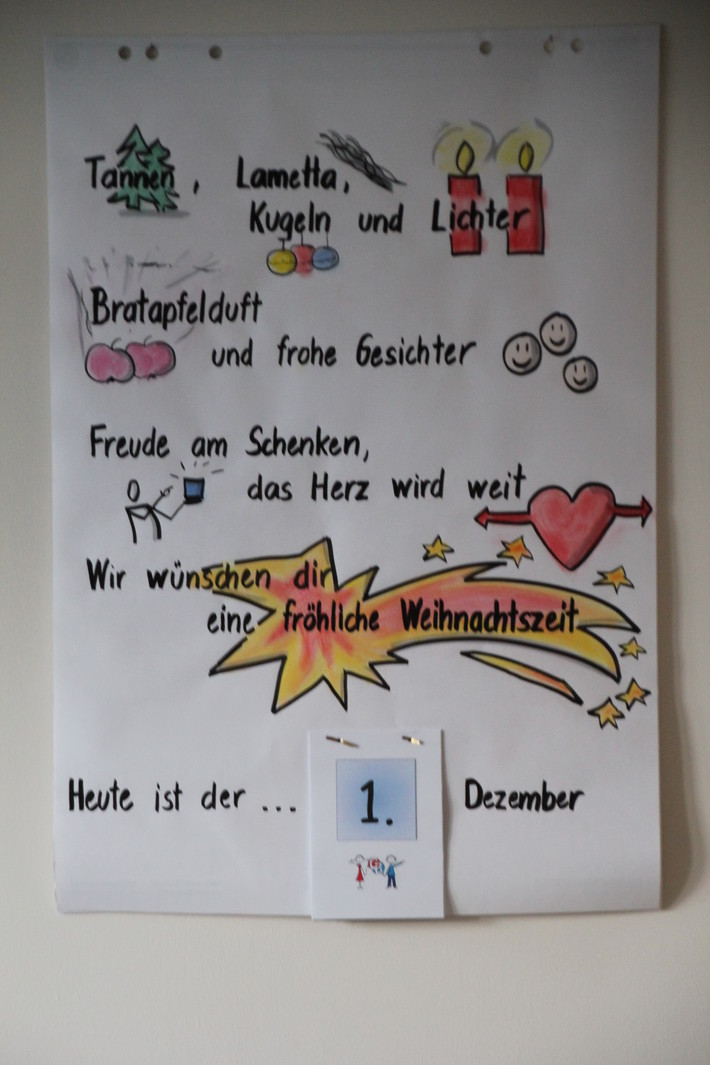 Tannen, Lametta,
Kugeln und Lichter
Bratapfelduft
und frohe Gesichter
Freude am Schenken,
das Herz wird weit
Wir wünschen dir
eine fröhliche Weihnachtszeit
Heute ist der ... 1. Dezember